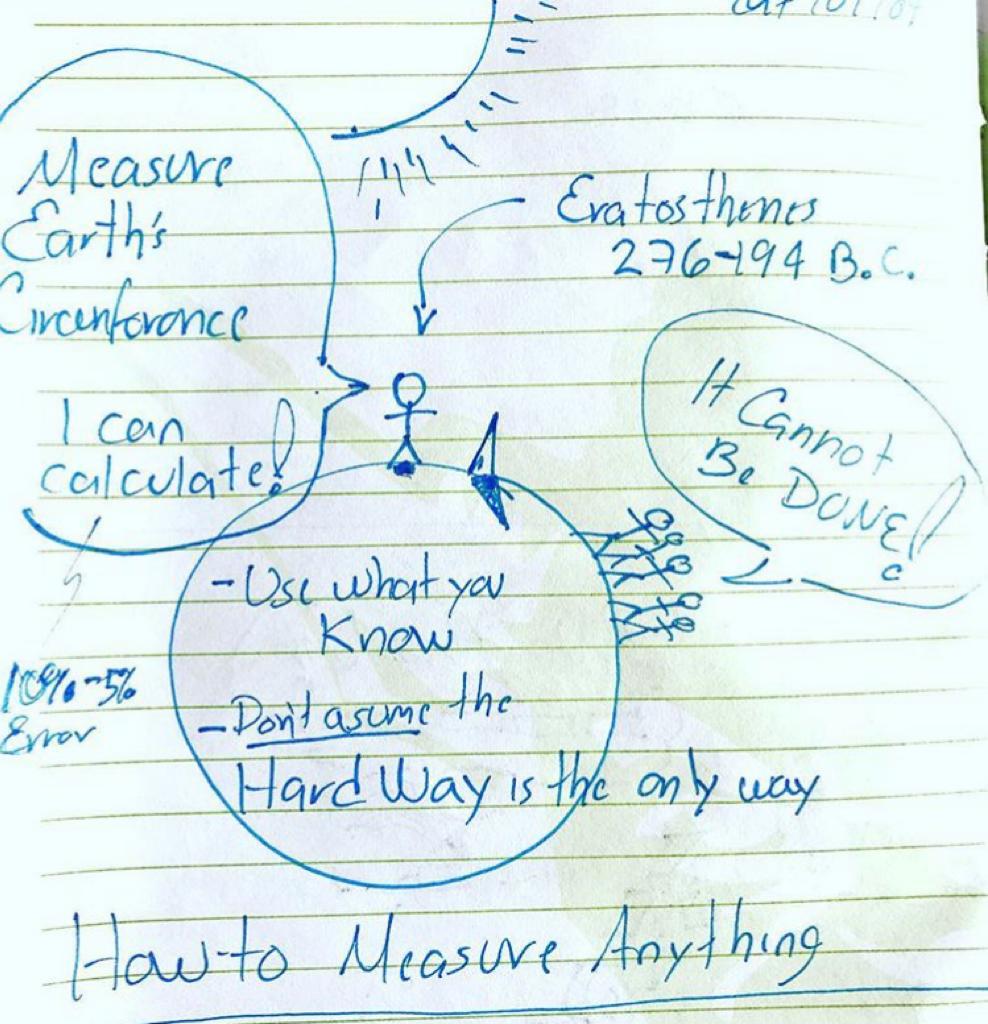 Measure
Earth's
Circenforance
I can
calculate!
Eratosthenes
276-194 B.C.
It Cannot
Be DONE!
- Use what you
Know
- Don't asume the
Hard Way is the only way
10%-5%
Error
How-to Measure Anything